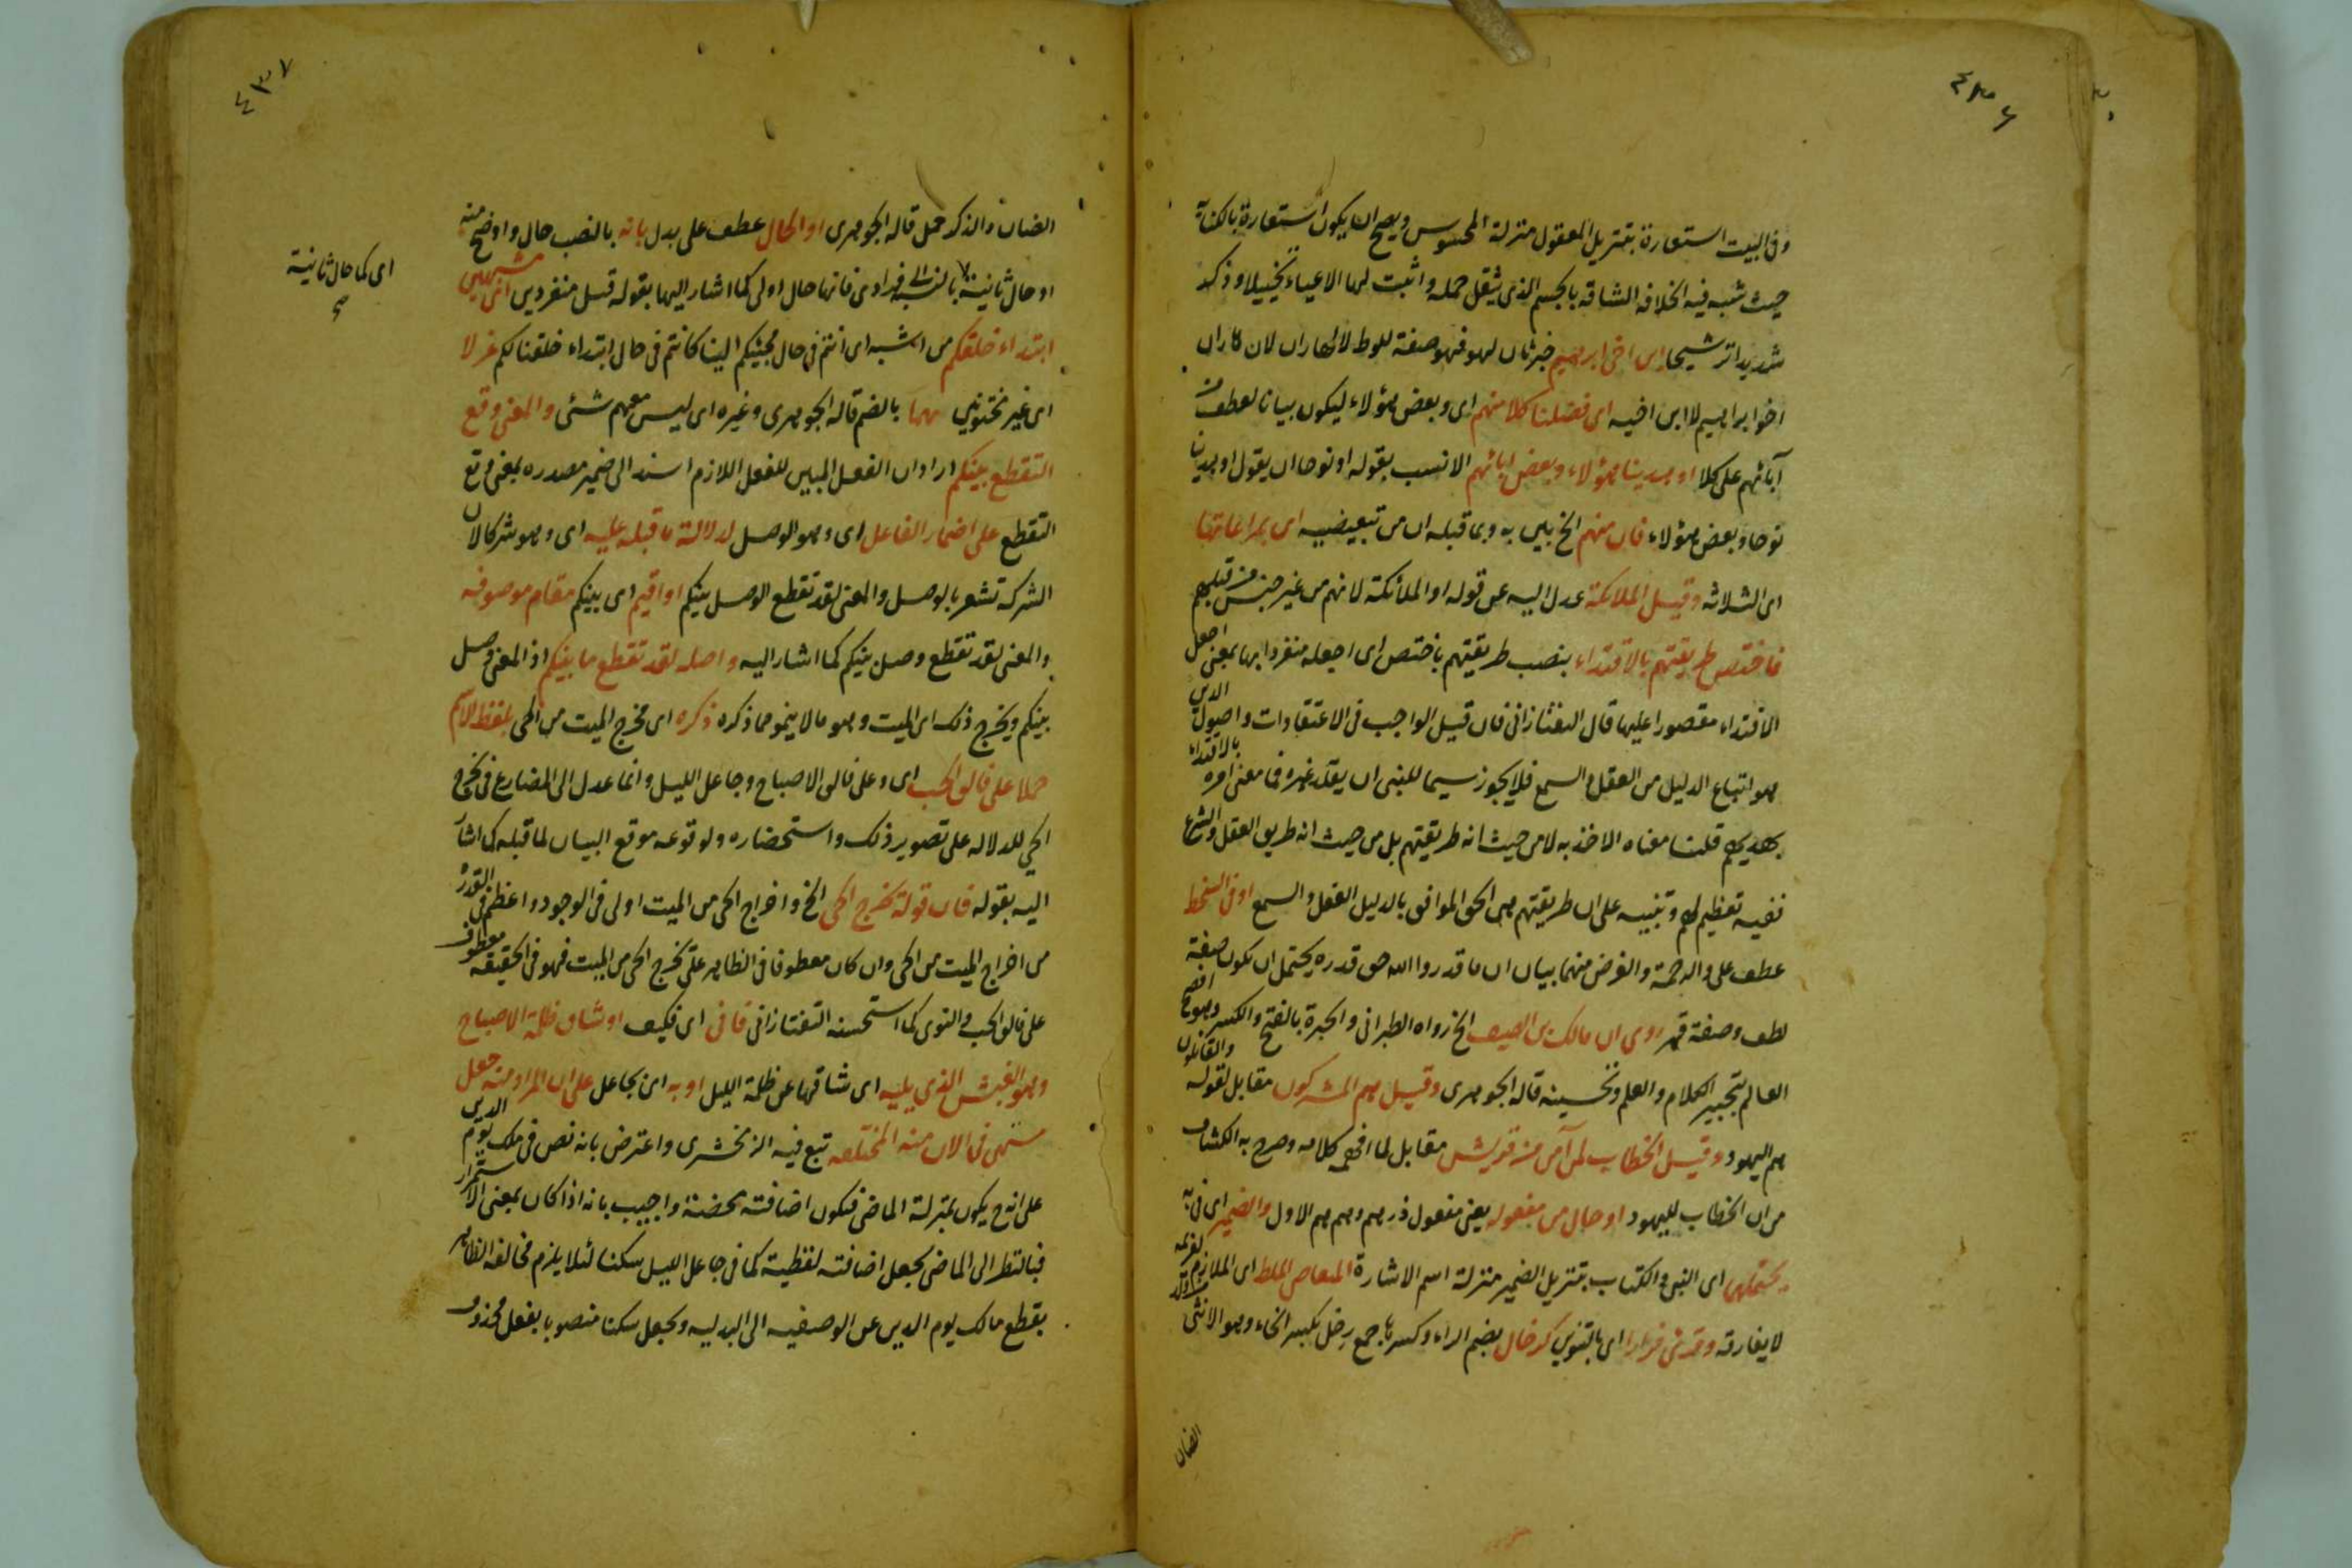 ٤٣٦
وفى البيت استعارة بتنزيل المعقول منزلة المحسوس ويصح ان يكون استعارة بالكناية
حيث شبه فيه الخلافه الشاقه بالجسم الذى يثقل حمله واثبت لها الاعياء تخييلا وذكر
شديدا ترشيحا ابن اخى ابرهيم خبر ثان لهو فهو صفة للوط لا لهاران لان هاران
اخو ابراهيم لا ابن اخيه اى فضلنا كلا منهم اى وبعض هؤلاء ليكون بيانا لعطف من
آبائهم على كلا او هدينا هؤلاء وبعض ابائهم الانسب بقوله او نوحا ان يقول او هدينا
نوحا وبعض هؤلاء فان منهم الخ بين به وبما قبله ان من تبعيضيه اى بمراعاتها
اى الثلاثه وقيل الملائكة عدل اليه عن قوله او الملائكة لانهم من غير جنس من قبلهم
فاختص طريقتهم بالاقتداء بنصب طريقتهم باختص اى اجعله منفردا بها بمعنى اجعل
الاقتداء مقصورا عليها قال التفتازانى فان قيل الواجب فى الاعتقادات واصول الدين
هو اتباع الدليل من العقل والسمع فلا يجوز سيما للنبى ان يقلد غيره فما معنى امره بالاقتداء
بهديهم قلنا معناه الاخذ به لا من حيث انه طريقتهم بل من حيث انه طريق العقل والشرع
ففيه تعظيم لهم وتنبيه على ان طريقتهم هى الحق الموافق بالدليل العقل والسمع او فى السخط
عطف على والرحمة والغرض منهما بيان ان ما قدروا الله حق قدره يحتمل ان تكون صفة
لطف وصفة قهر روى ان مالك بن الصيف الخ رواه الطبرانى والحبرة بالفتح والكسر وهو افصح
العالم بتحبير الكلام والعلم وتحسينه قاله الجوهرى وقيل هم المشركون مقابل لقوله والقائلون
هم اليهود وقيل الخطاب لمن آمن من قريش مقابل لما افهمه كلامه وصرح به الكشاف
من ان الخطاب لليهود او حال من مفعوله يعنى مفعول ذرهم وهم هم الاول والضمير اى فى به
يحتملهما اى النبى والكتاب بتنزيل الضمير منزلة اسم الاشارة الملط اى الملازم لغريمه
لا يفارقه وقرئ فرادا اى بالتنوين كرخال بضم الراء وكسرها جمع رخل بكسر الخاء وهو الانثى
الضان
٤٣٧
الضان والذكر حمل قاله الجوهرى او الحال عطف على بدل بانه بالنصب حال واوضح منه
او حال ثانية بالنسبة الى فرادى فانها حال اولى كما اشار اليها بقوله قبل منفردين اى مشبهين
اى كما حال ثانية
ابتداء خلقكم من الشبه اى انتم فى حال مجيئكم الينا كما انتم فى حال ابتداء خلقنا لكم غرلا
اى غير مختونين بهما بالضم قاله الجوهرى وغيره اى ليس معهم شئى والمعنى وقع
التقطع بينكم اراد ان الفعل المبين للفعل اللازم اسند الى ضمير مصدره بمعنى وقع
التقطع على اضمار الفاعل اى وهو الوصل لدلالة ما قبله عليه اى وهو شركا لان
الشركة تشعر بالوصل والمعنى لقد تقطع الوصل بينكم او اقيم اى بينكم مقام موصوفه
والمعنى لقد تقطع وصل بينكم كما اشار اليه واصله لقد تقطع ما بينكم اذ المعنى وصل
بينكم ويخرج ذلك اى الميت وهو ما لا ينمو مما ذكره ذكره اى مخرج الميت من الحى بلفظ الاسم
حملا على فالق الحب اى وعلى فالق الاصباح وجاعل الليل وانما عدل الى المضارع فى يخرج
الحي للدلاله على تصوير ذلك واستحضاره ولوقوعه موقع البيان لما قبله كما اشار
اليه بقوله فان قوله يخرج الحى الخ واخراج الحى من الميت اولى فى الوجود واعظم فى القدرة
من اخراج الميت من الحى وان كان معطوفا فى الظاهر على يخرج الحى من الميت فهو فى الحقيقه معطوف
على فالق الحب والنوى كما استحسنه التفتازانى فانى اى فكيف او شاق ظلمة الاصباح
وهو الغبش الذى يليه اى شاقها عن ظلمة الليل او به اى بجاعل على ان المراد منه جعل
مستمر فى الازمنه المختلفه تبع فيه الزمخشرى واعترض بانه نص فى ملك يوم الدين
على انه ح يكون بمنزلة الماضى فتكون اضافته محضة واجيب بانه اذا كان بمعنى الاستمرار
فبالنظر الى الماضى يجعل اضافته لفظية كما فى جاعل الليل سكنا لئلا يلزم مخالفه الظاهر
بقطع مالك يوم الدين عن الوصفيه الى البدليه وبجعل سكنا منصوبا بفعل محذوف